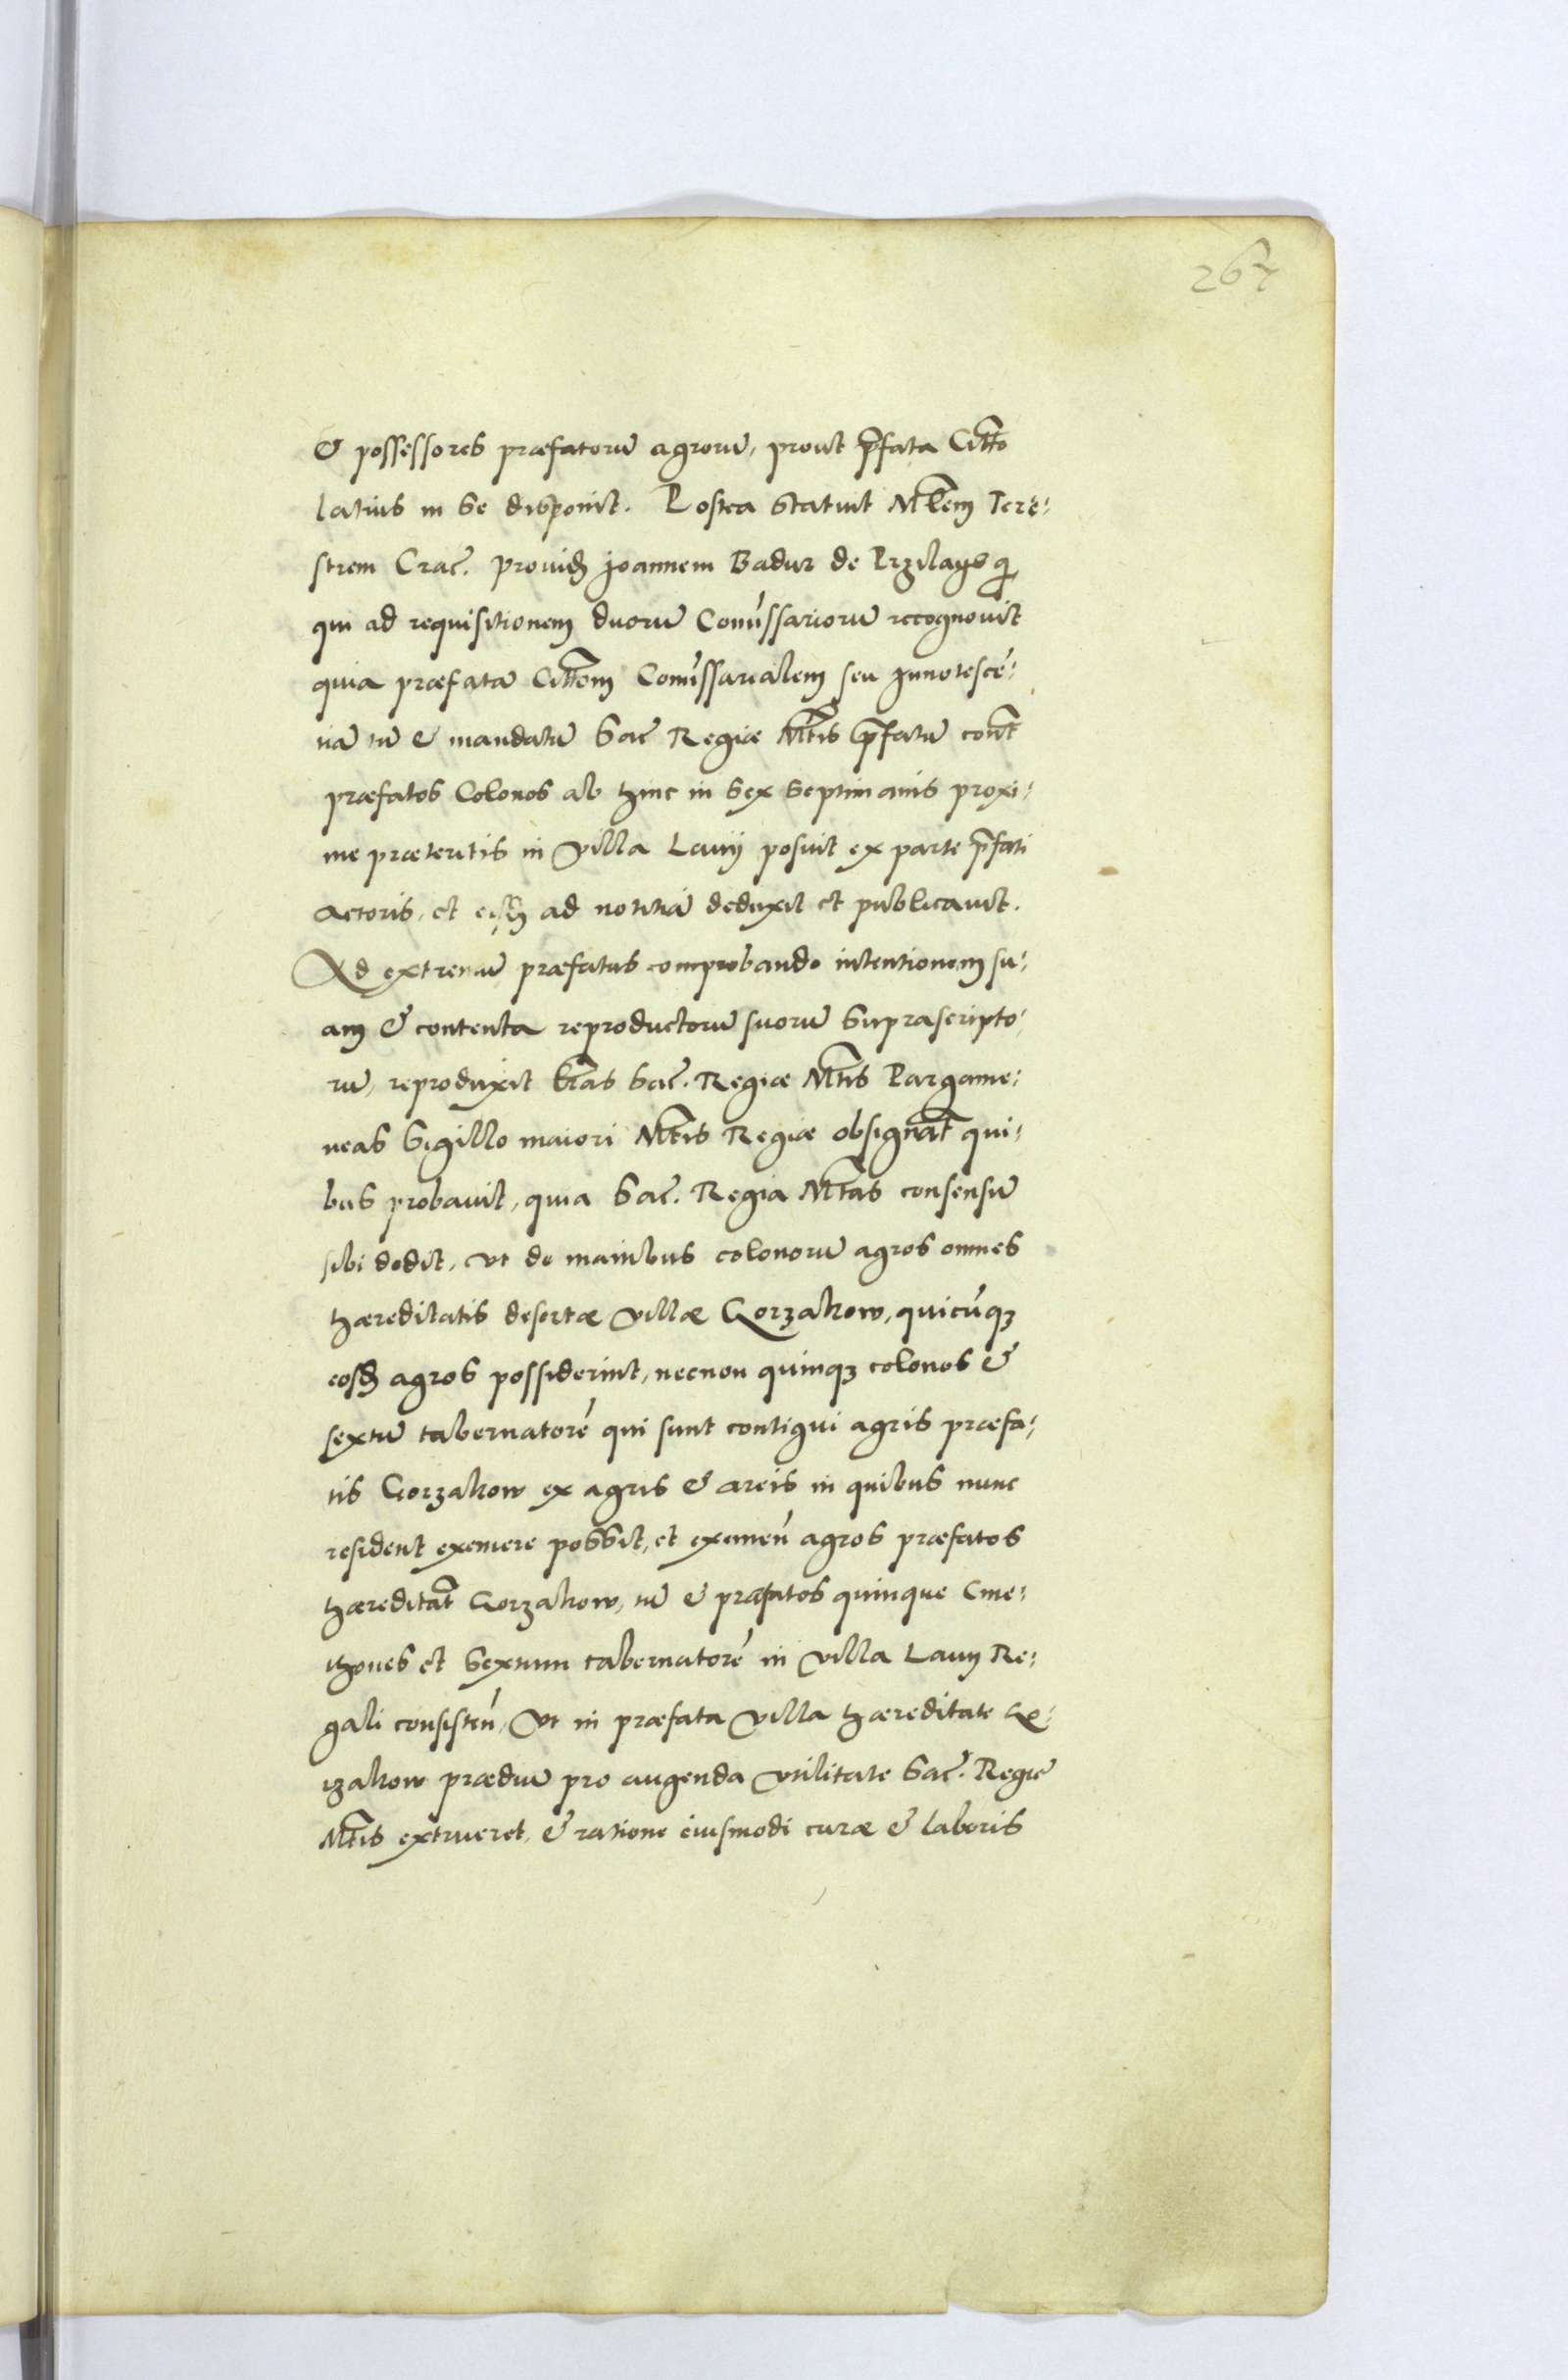 267
& possessores præfatorũ agrorũ, prout p̃fata Citt̃o
latius in se disponit. Postea statuit Mr̃lem Tere:
strem Crac̃. prouid̃ Joannem Badur de Przilagᵒ
qui ad requisitionem duorũ Com̃issariorũ recognouit
quia præfatã Citt̃oem Com̃issarialem seu Innotescẽ:
tiã tũ & mandatũ Sac̃ Regiæ Mt̃is p̃fatũ cont̃
præfatos Colonos ab hinc in sex septimanis proxi:
me præteritis in villa Lauy posuit ex parte p̃fati
Actoris, et eisd̃ ad notitiã deduxit et publicauit.
Ad extremũ præfatus comprobando intentionem su:
am & contenta reproductorũ suorũ suprascripto:
rũ, reproduxit lr̃as Sac̃. Regiæ Mt̃is Pargame:
neas Sigillo maiori Mt̃is Regiæ obsignat̃ qui:
bus probauit, quia Sac̃. Regia Mt̃as consensũ
sibi dedit, vt de manibus colonorũ agros omnes
hæreditatis desertæ villæ Gorzakow, quicũq3
eosd̃ agros possiderint, necnon quinq3 colonos &
sextũ tabernatorẽ qui sunt contigui agris præfa:
tis Gorzakow ex agris & areis in quibus nunc
resident exemere possit, et exemeñ agros præfatos
hæreditat̃ Gorzakow, tũ & præfatos quinque Cme:
thones et sextum tabernatorẽ in villa Lauy Re:
gali consisteñ, vt in præfata villa hæreditate Go:
rzakow prædiũ pro augenda vtilitate Sac̃. Regiæ
Mt̃is extrueret, & ratione eiusmodi curæ & laboris